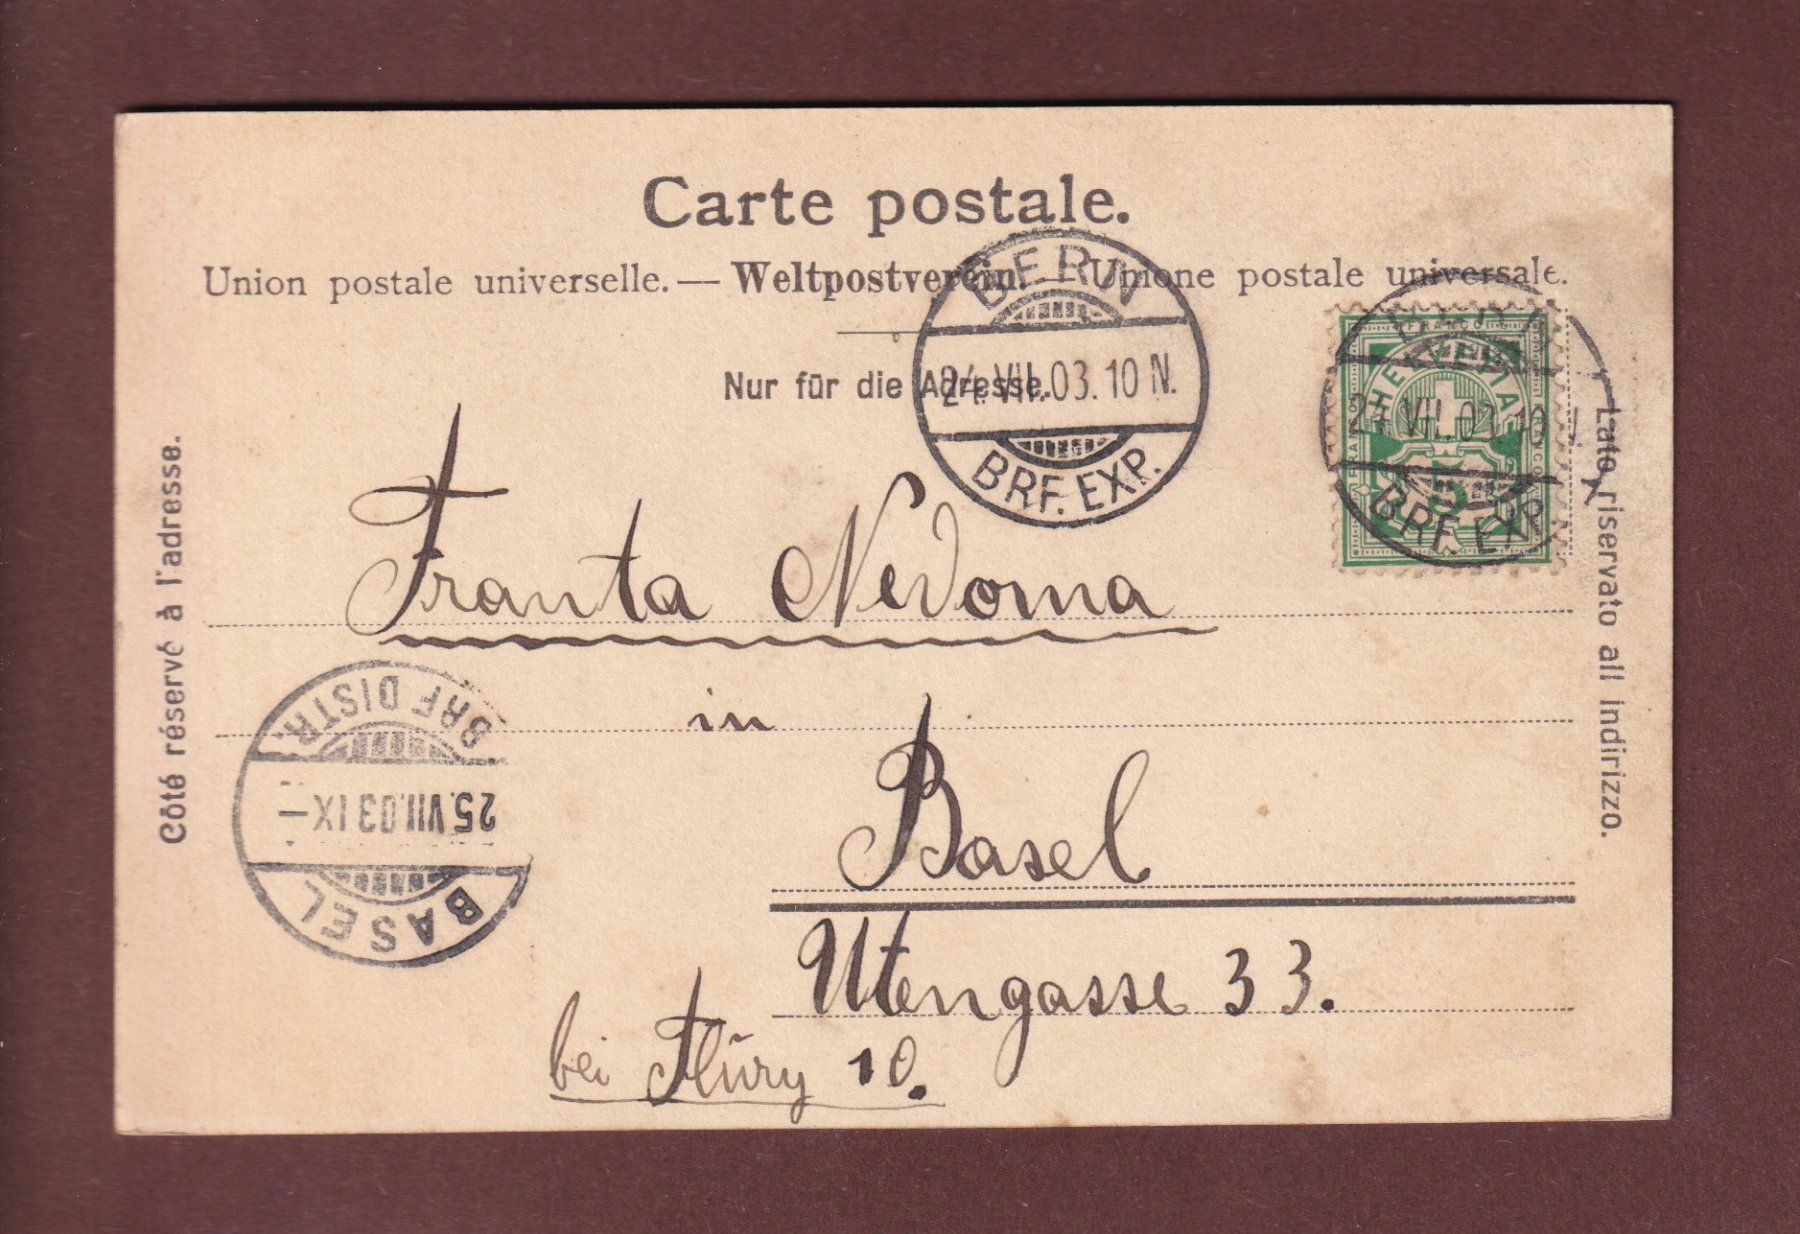 Carte postale.
Union postale universelle. — Weltpostverein. — Unione postale universale.
Nur für die Adresse.
Côté réservé à l'adresse.
Lato riservato all indirizzo.
BERN
24.VII.03.10 N.
BRF. EXP.
FRANCO
HELVETIA
5
24.VII.03.10
BRF. EXP.
Franta Nevoma
in
Basel
Utengasse 33.
bei Flury 10.
BASEL
25.VII.03 IX—
BRF DISTR.